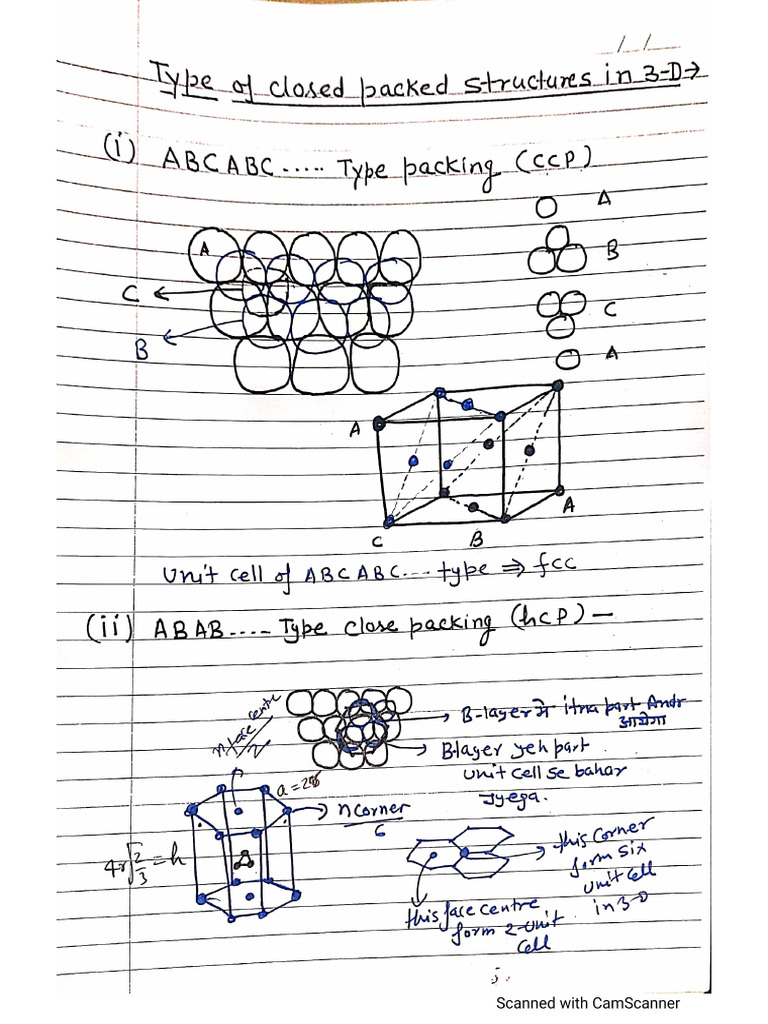 / /
Type of closed packed structures in 3-D→
(i) ABCABC..... Type packing (CCP)
A
A
B
C
C
B
A
A
A
C
B
Unit cell of ABCABC... type ⇒ fcc
(ii) ABAB..... Type close packing (hcp) —
n face centre
2
B-layer में itna part Andr
आयेगा
B layer yeh part
unit cell se bahar
Jyega.
a = 2
n corner
6
4r√2/3 = h
this corner
form six
unit cell
in 3-D
this face centre
form 2-unit
cell
Scanned with CamScanner